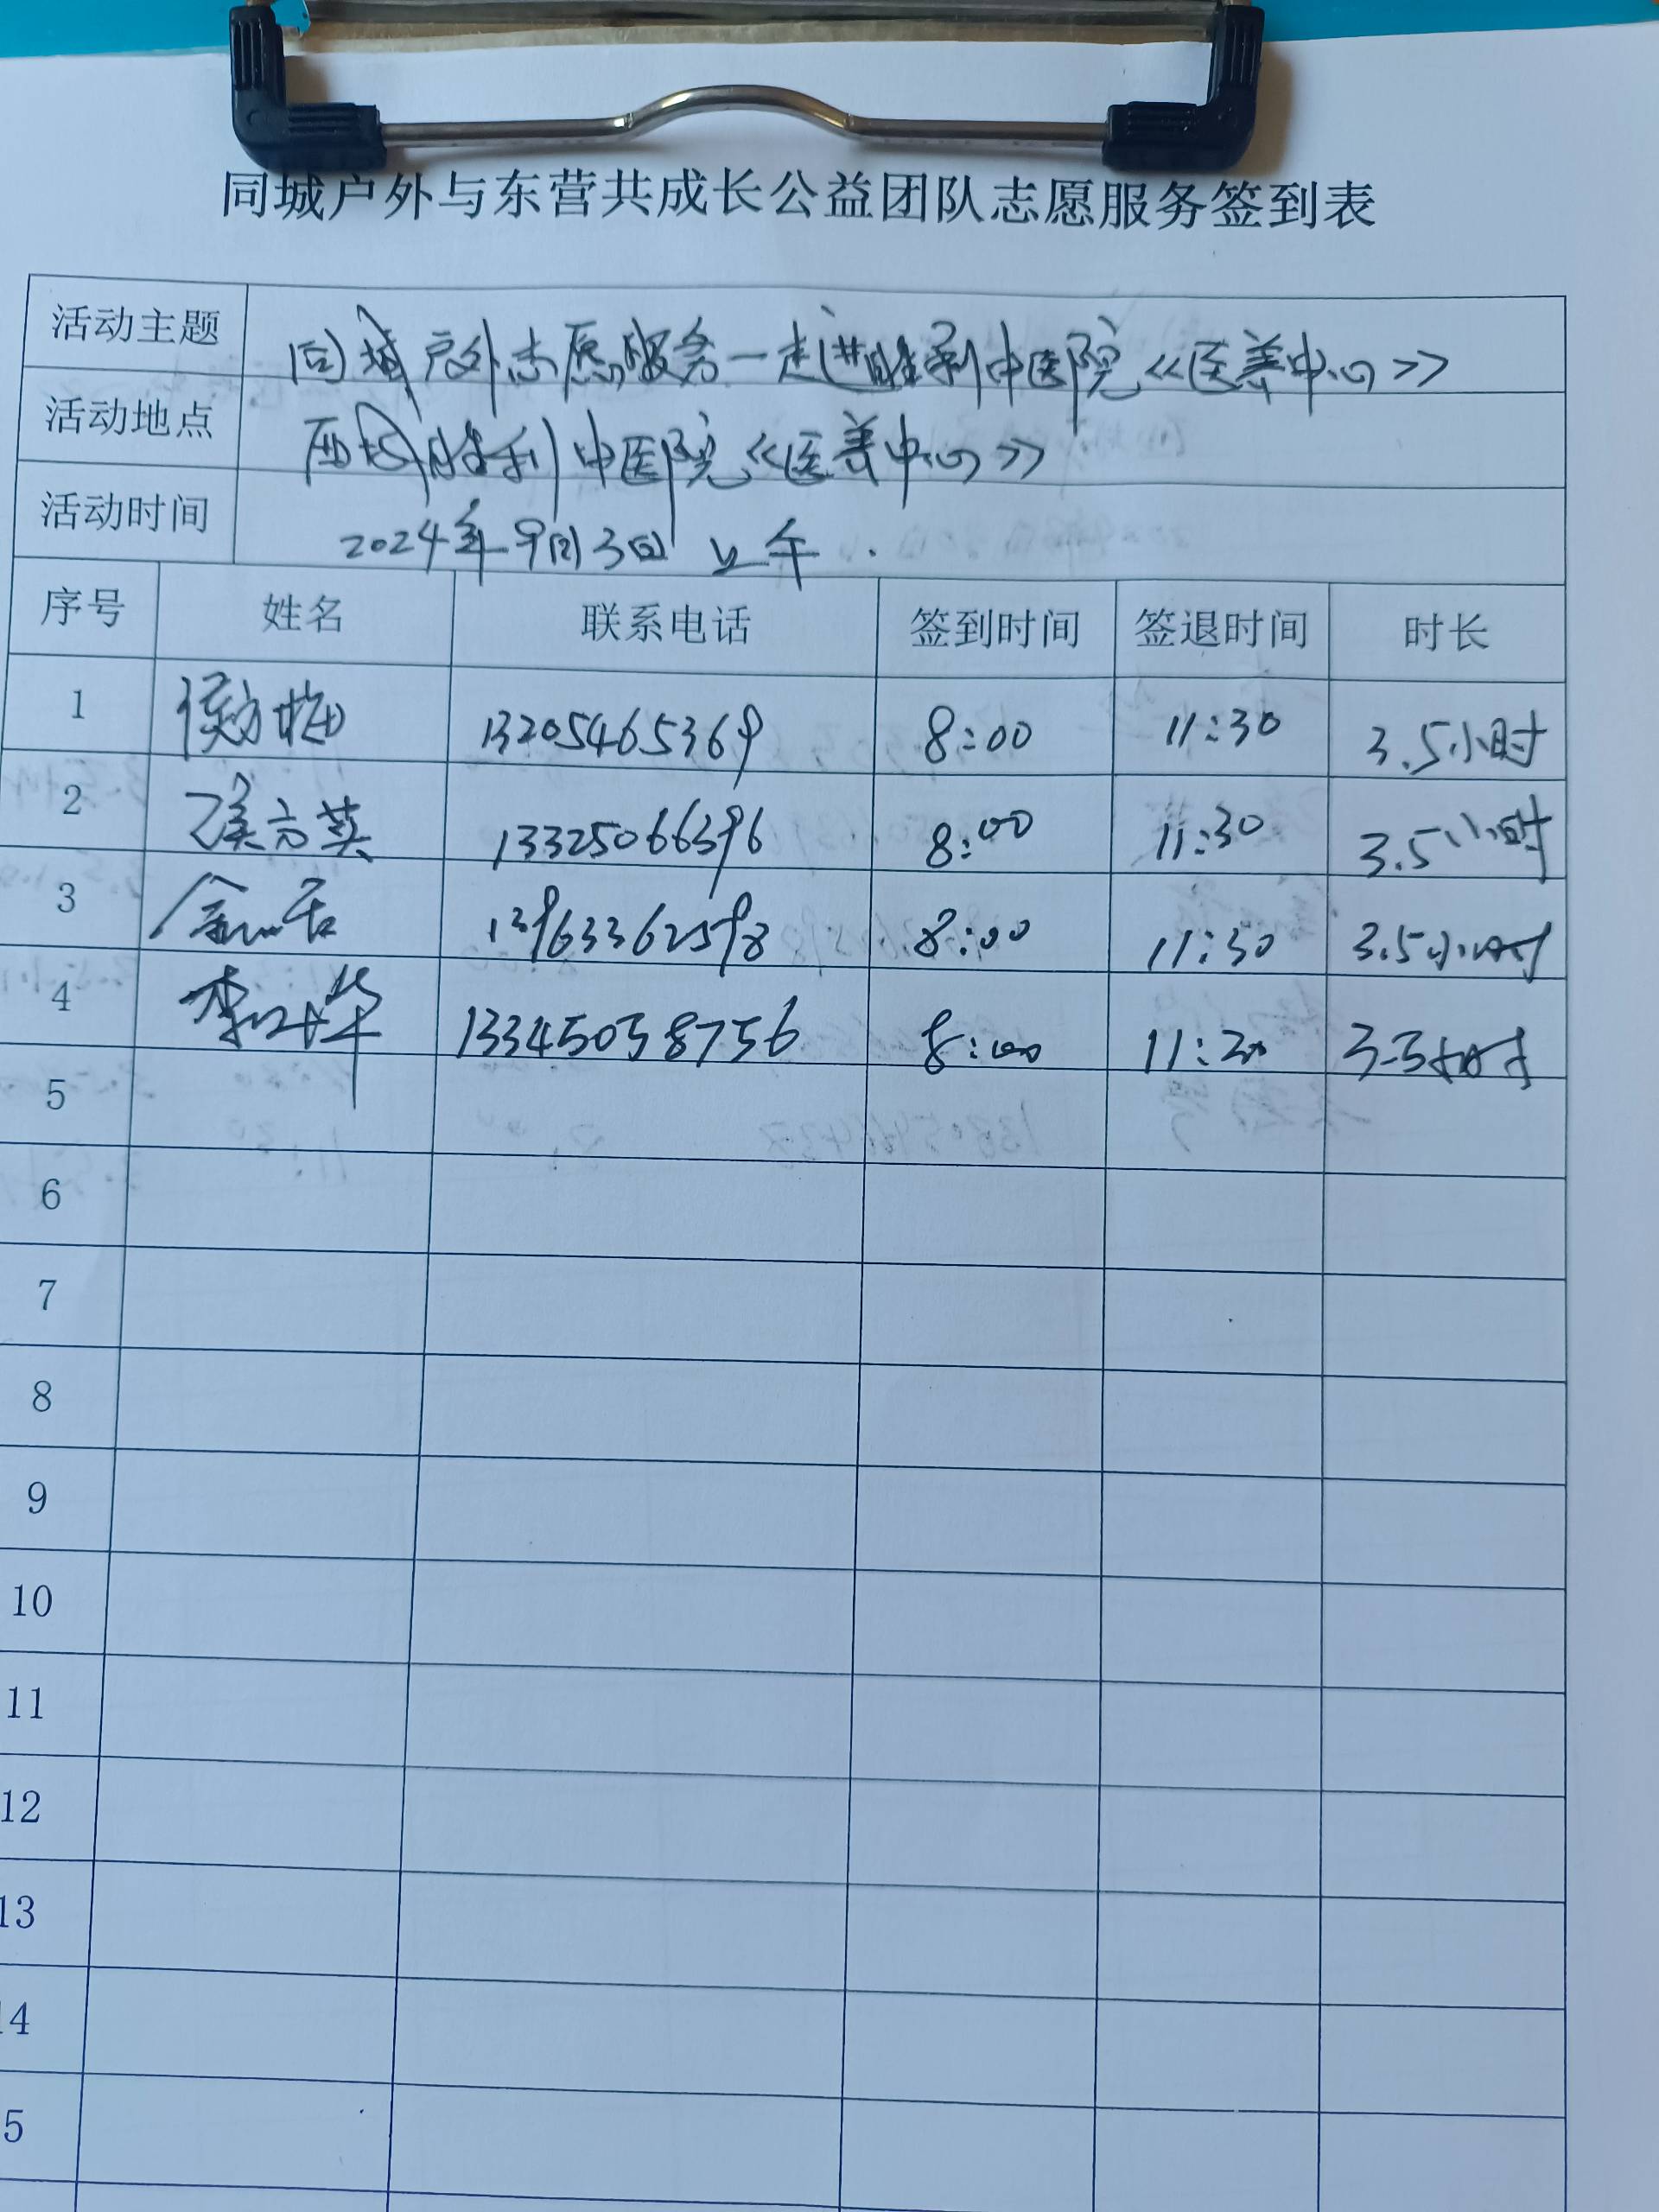 同城户外与东营共成长公益团队志愿服务签到表
活动主题 同城户外志愿服务一走进胜利中医院《医养中心》
活动地点 西城胜利中医院《医养中心》
活动时间 2024年9月3日 上午.
序号 姓名 联系电话 签到时间 签退时间 时长
1 侯方梅 13205465369 8:00 11:30 3.5小时
2 13325066396 8:00 11:30 3.5小时
3 13963362598 8:00 11:30 3.5小时
4 13345058756 8:00 11:30 3.5小时
5
6
7
8
9
10
11
12
13
14
5